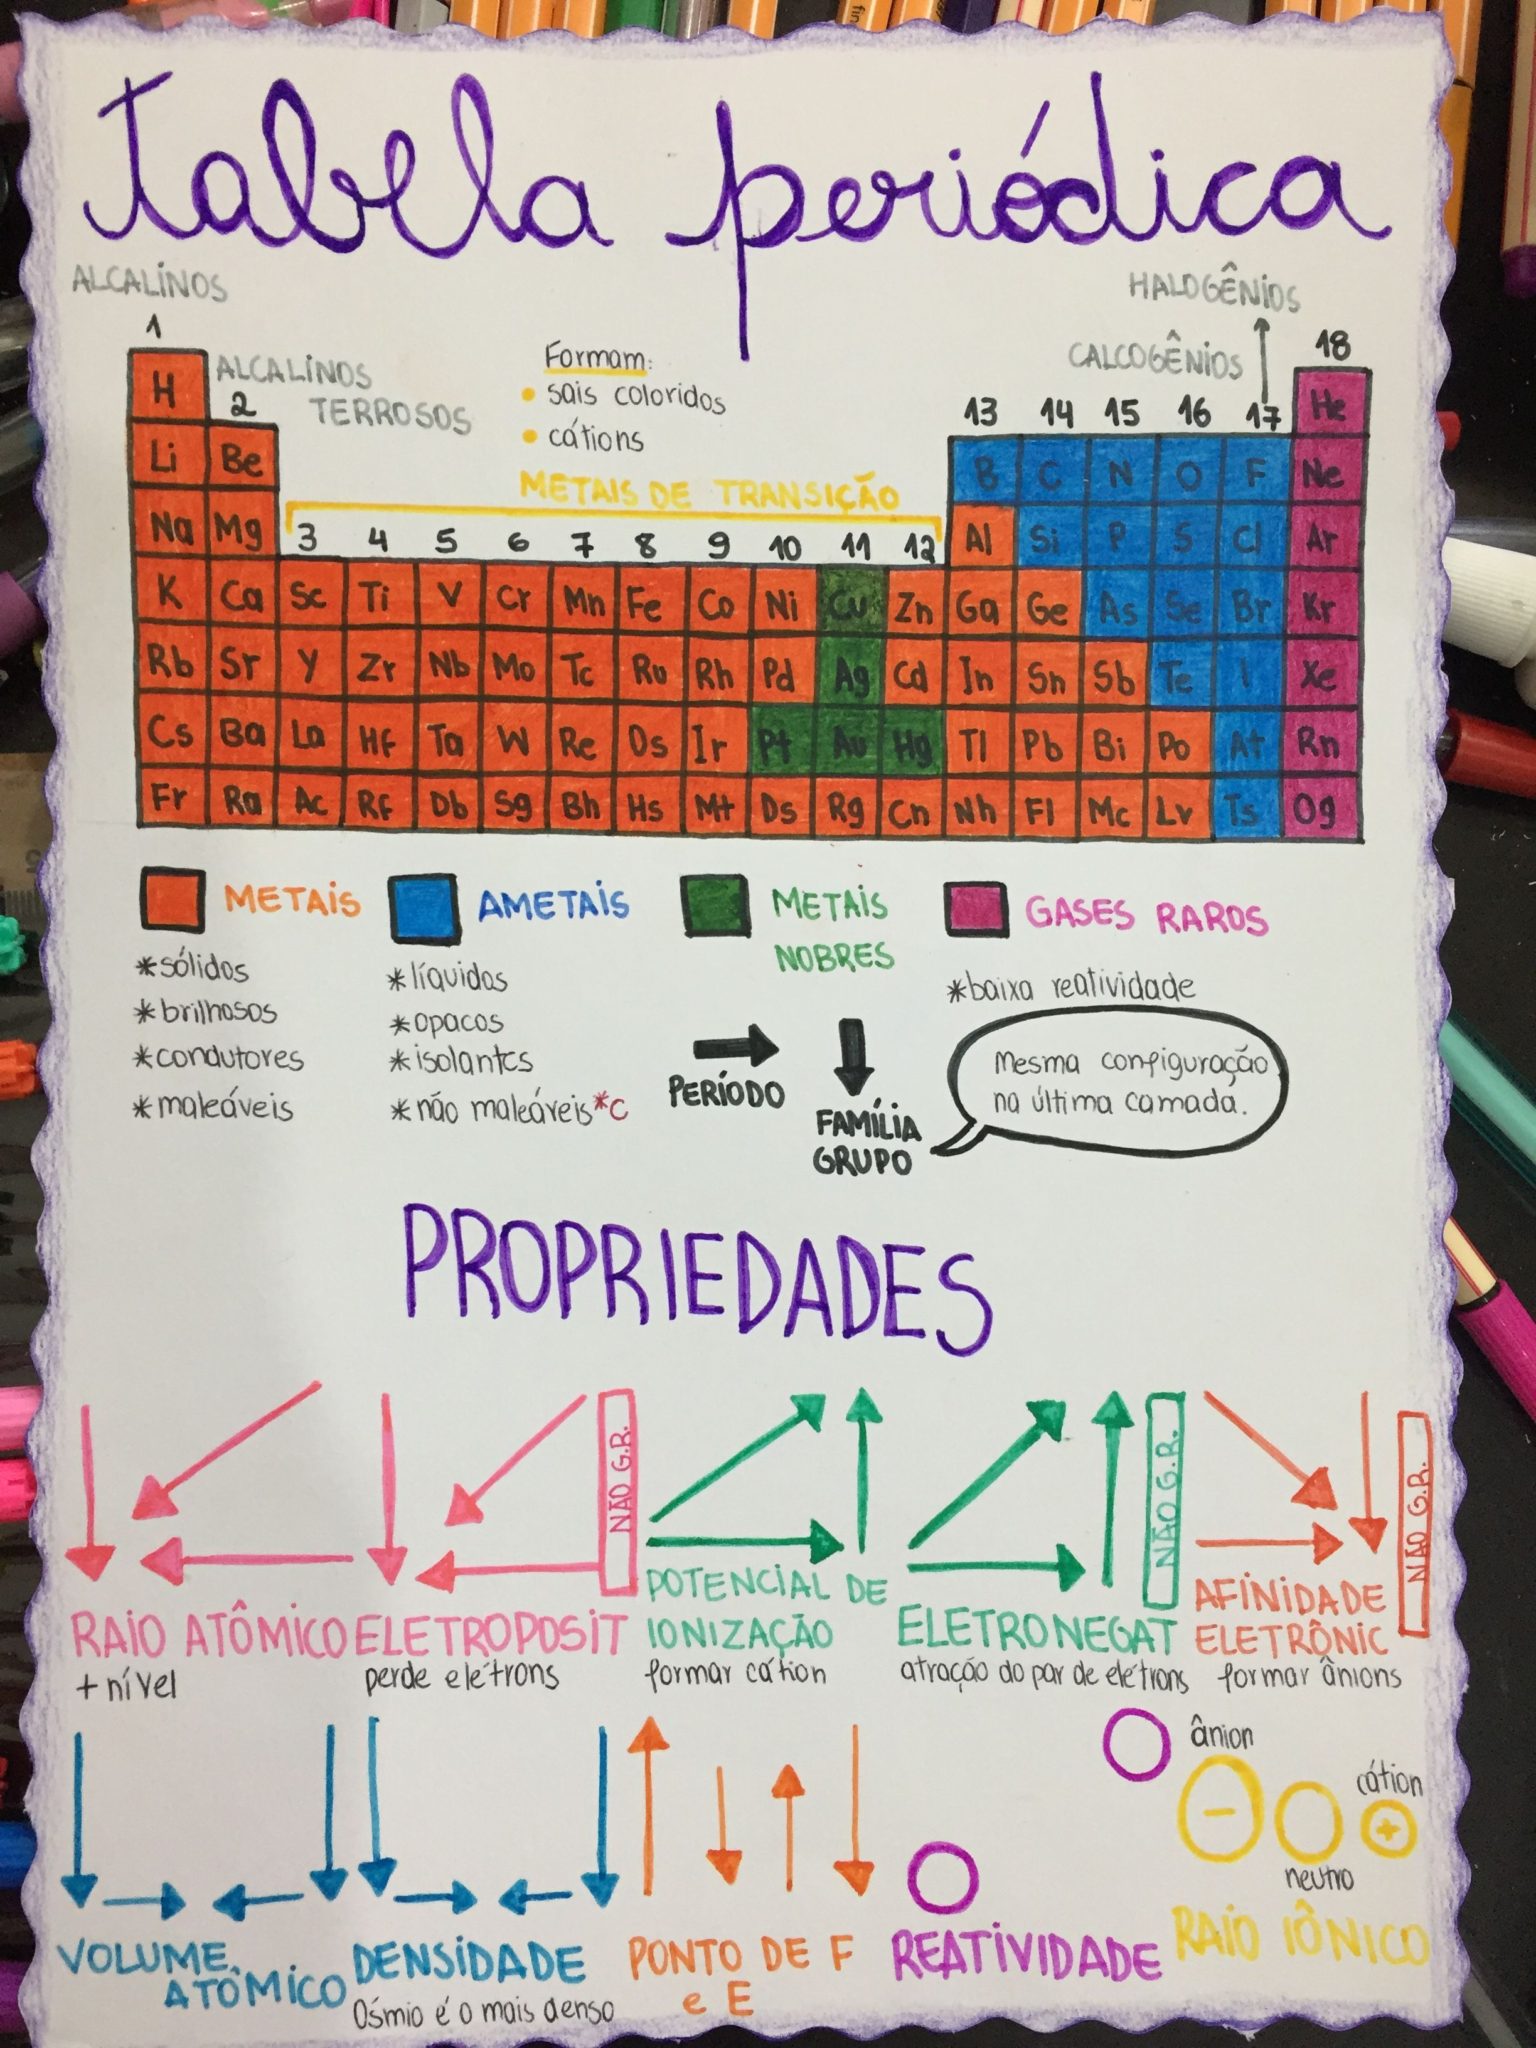 tabela periódica
ALCALINOS
HALOGÊNIOS
1
ALCALINOS
TERROSOS
2
Formam:
• sais coloridos
• cátions
CALCOGÊNIOS
18
13 14 15 16 17
METAIS DE TRANSIÇÃO
3 4 5 6 7 8 9 10 11 12
H He
Li Be B C N O F Ne
Na Mg Al Si P S Cl Ar
K Ca Sc Ti V Cr Mn Fe Co Ni Cu Zn Ga Ge As Se Br Kr
Rb Sr Y Zr Nb Mo Tc Ru Rh Pd Ag Cd In Sn Sb Te I Xe
Cs Ba La Hf Ta W Re Os Ir Pt Au Hg Tl Pb Bi Po At Rn
Fr Ra Ac Rf Db Sg Bh Hs Mt Ds Rg Cn Nh Fl Mc Lv Ts Og
METAIS
*sólidos
*brilhosos
*condutores
*maleáveis
AMETAIS
*líquidos
*opacos
*isolantes
*não maleáveis *C
METAIS
NOBRES
GASES RAROS
*baixa reatividade
PERÍODO
FAMÍLIA
GRUPO
Mesma configuração
na última camada.
PROPRIEDADES
RAIO ATÔMICO
+ nível
NÃO G.R.
ELETROPOSIT
perde elétrons
POTENCIAL DE
IONIZAÇÃO
formar cátion
NÃO G.R.
ELETRONEGAT
atração do par de elétrons
NÃO G.R.
AFINIDADE
ELETRÔNIC
formar ânions
VOLUME
ATÔMICO
DENSIDADE
Ósmio é o mais denso
PONTO DE F
e E
REATIVIDADE
ânion
cátion
−
+
neutro
RAIO IÔNICO